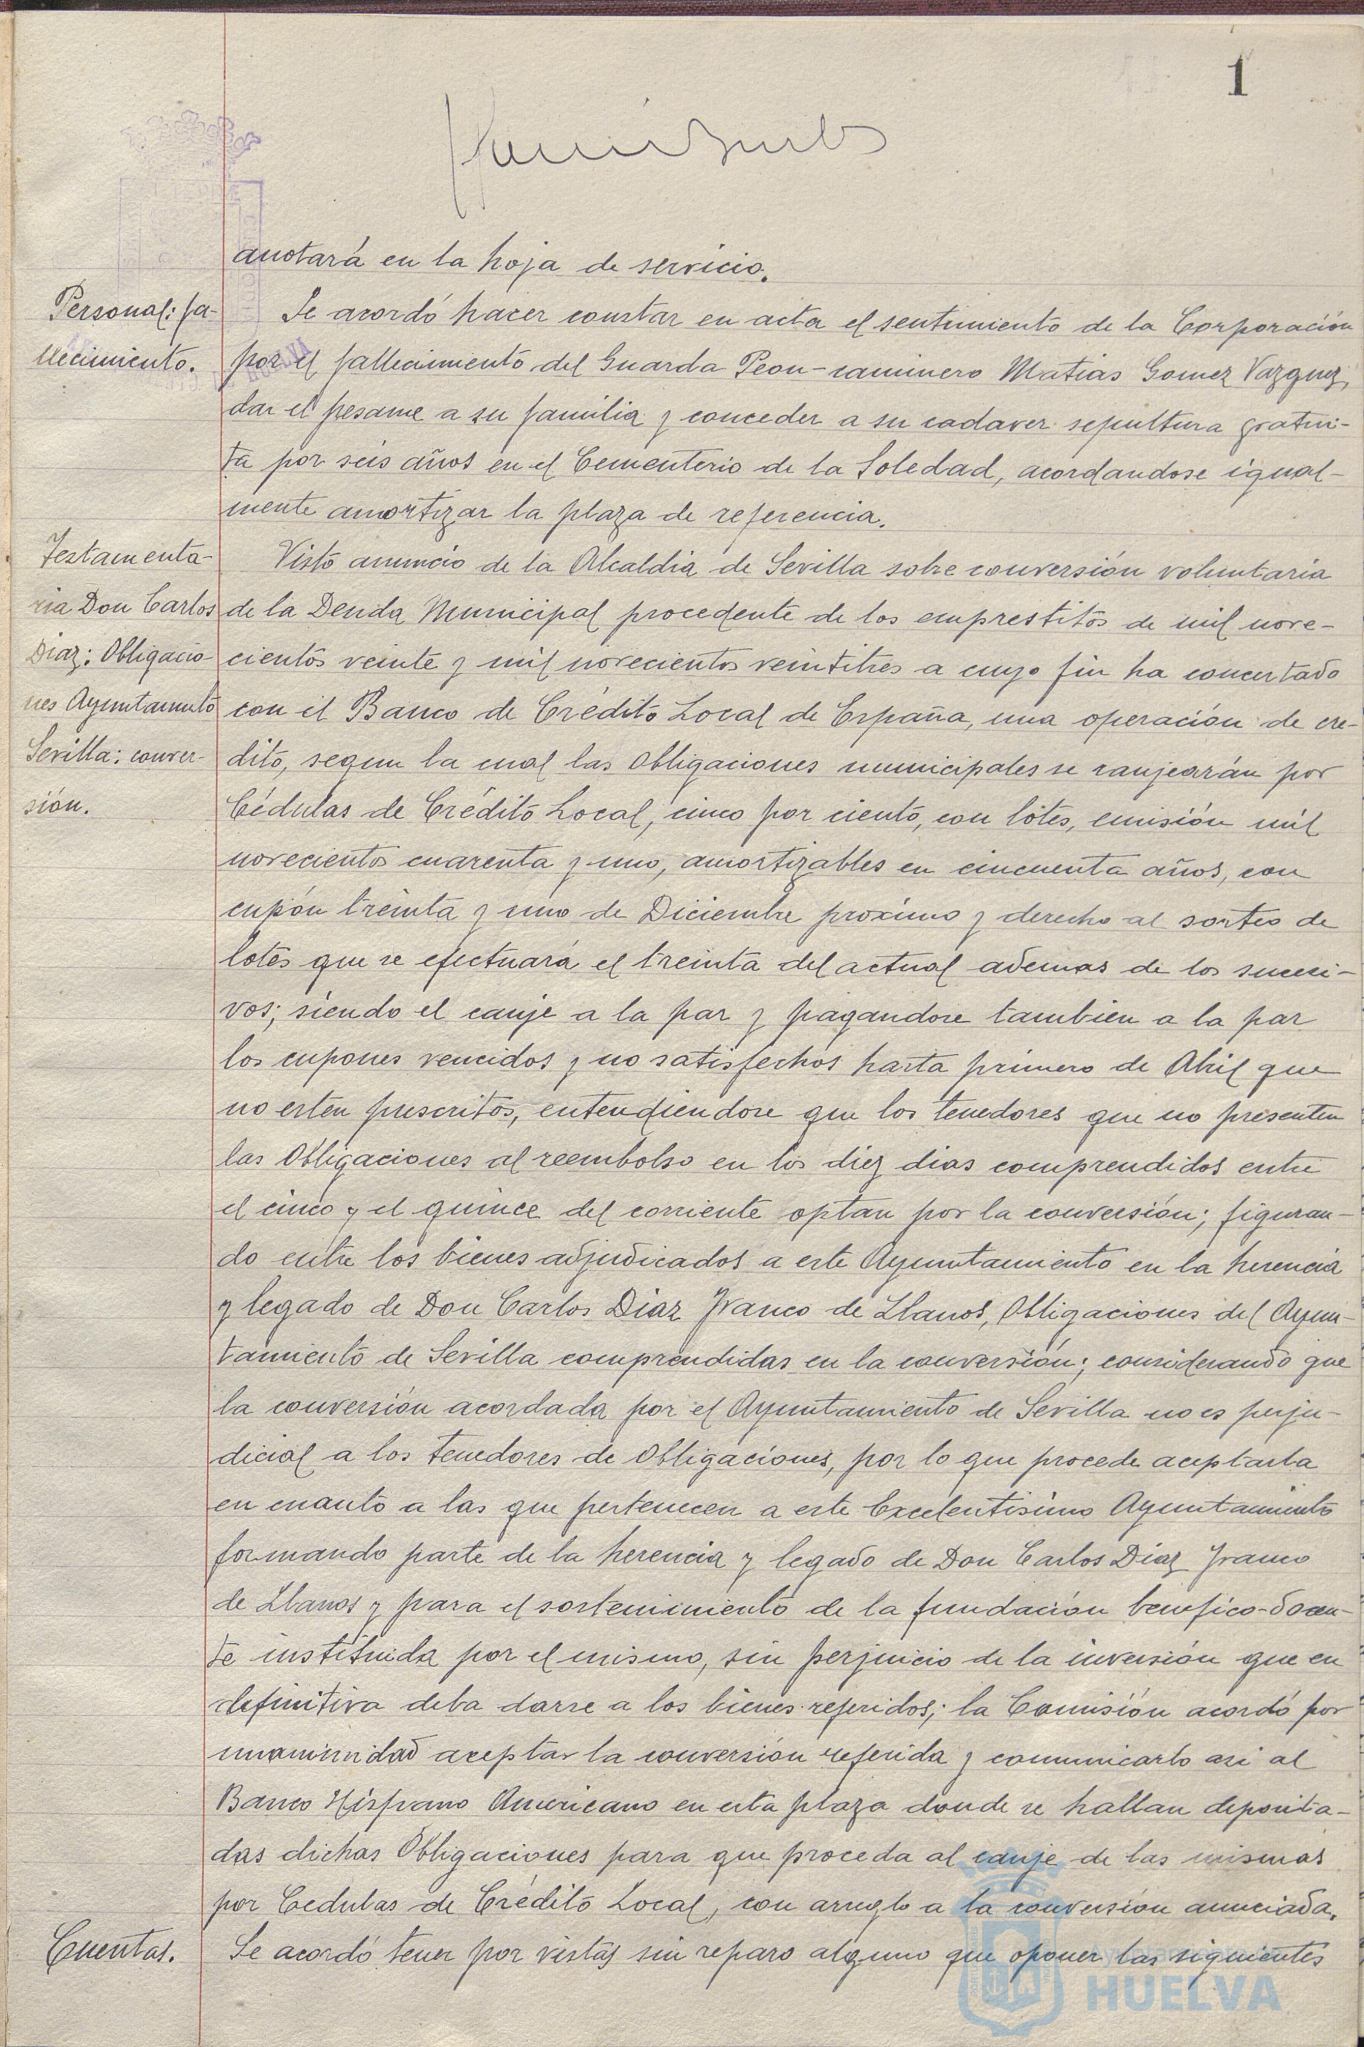 1
anotará en la hoja de servicio.
Personal: fa-
llecimiento.
Se acordó hacer constar en acta el sentimiento de la Corporación
por el fallecimiento del Guarda Peon-caminero Matias Gomez Vazquez,
dar el pesame a su familia y conceder a su cadaver sepultura gratui-
ta por seis años en el Cementerio de la Soledad, acordandose igual-
mente amortizar la plaza de referencia.
Testamenta-
ria Don Carlos
Diaz: Obligacio-
nes Ayuntamiento
Sevilla: conver-
sión.
Visto anuncio de la Alcaldia de Sevilla sobre conversión voluntaria
de la Deuda Municipal procedente de los emprestitos de mil nove-
cientos veinte y mil novecientos veintitres a cuyo fin ha concertado
con el Banco de Crédito Local de España, una operación de cre-
dito, segun la cual las Obligaciones municipales se canjearán por
Cédulas de Crédito Local, cinco por ciento, con lotes, emisión mil
novecientos cuarenta y uno, amortizables en cincuenta años, con
cupón treinta y uno de Diciembre proximo y derecho al sorteo de
lotes que se efectuará el treinta del actual ademas de los sucesi-
vos; siendo el canje a la par y pagandose tambien a la par
los cupones vencidos y no satisfechos hasta primero de Abril que
no esten prescritos, entendiendose que los tenedores que no presenten
las Obligaciones al reembolso en los diez dias comprendidos entre
el cinco y el quince del corriente optan por la conversión; figuran-
do entre los bienes adjudicados a este Ayuntamiento en la herencia
y legado de Don Carlos Diaz Franco de Llanos, Obligaciones del Ayun-
tamiento de Sevilla comprendidas en la conversión; considerando que
la conversión acordada por el Ayuntamiento de Sevilla no es perju-
dicial a los tenedores de Obligaciones, por lo que procede aceptarla
en cuanto a las que pertenecen a este Excelentisimo Ayuntamiento
formando parte de la herencia y legado de Don Carlos Diaz Franco
de Llanos y para el sostenimiento de la fundación benefico-docen-
te instituida por el mismo, sin perjuicio de la inversión que en
definitiva deba darse a los bienes referidos; la Comisión acordó por
unanimidad aceptar la conversión referida y comunicarlo asi al
Banco Hispano Americano en esta plaza donde se hallan deposita-
das dichas Obligaciones para que proceda al canje de las mismas
por Cedulas de Crédito Local, con arreglo a la conversión anunciada.
Cuentas.
Se acordó tener por vistas sin reparo alguno que oponer las siguientes
Ayuntamiento
HUELVA